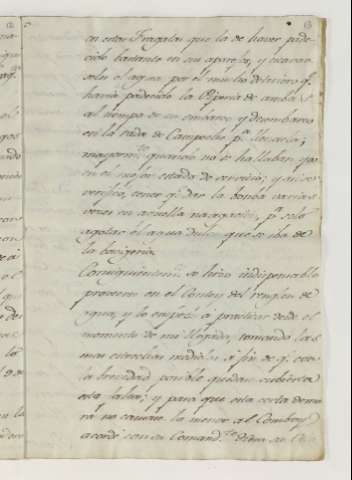 13
en estas Fragatas que la de haver pade-
cido bastante en sus aparejos, y escaseado
soles el agua por el mucho deterioro q.e
havia padecido la Piperia de ambas
al tiempo de su embarco y desembarco
en la rada de Campeche p.a llenarla;
mayorm.te quando no se hallaban ya
en el mejor estado de servicio; y asi se
verificó, tener q.e dar la bomba varias
veces en aquella navegacion, p.a solo
agotar el agua dulce que se iba de
la bodegeria.
Consiguientem.te se hizo indispensable
proveer en el Conboy del renglon de
agua, y lo empezé á practicar desde el
momento de mi llegada, tomando las
mas estrechas medidas á fin de q.e con
la brevedad posible quedase cubierta
esta falta; y para que esta corta demo
ra no causare la menor al Comboy
acordé con su Comand.te